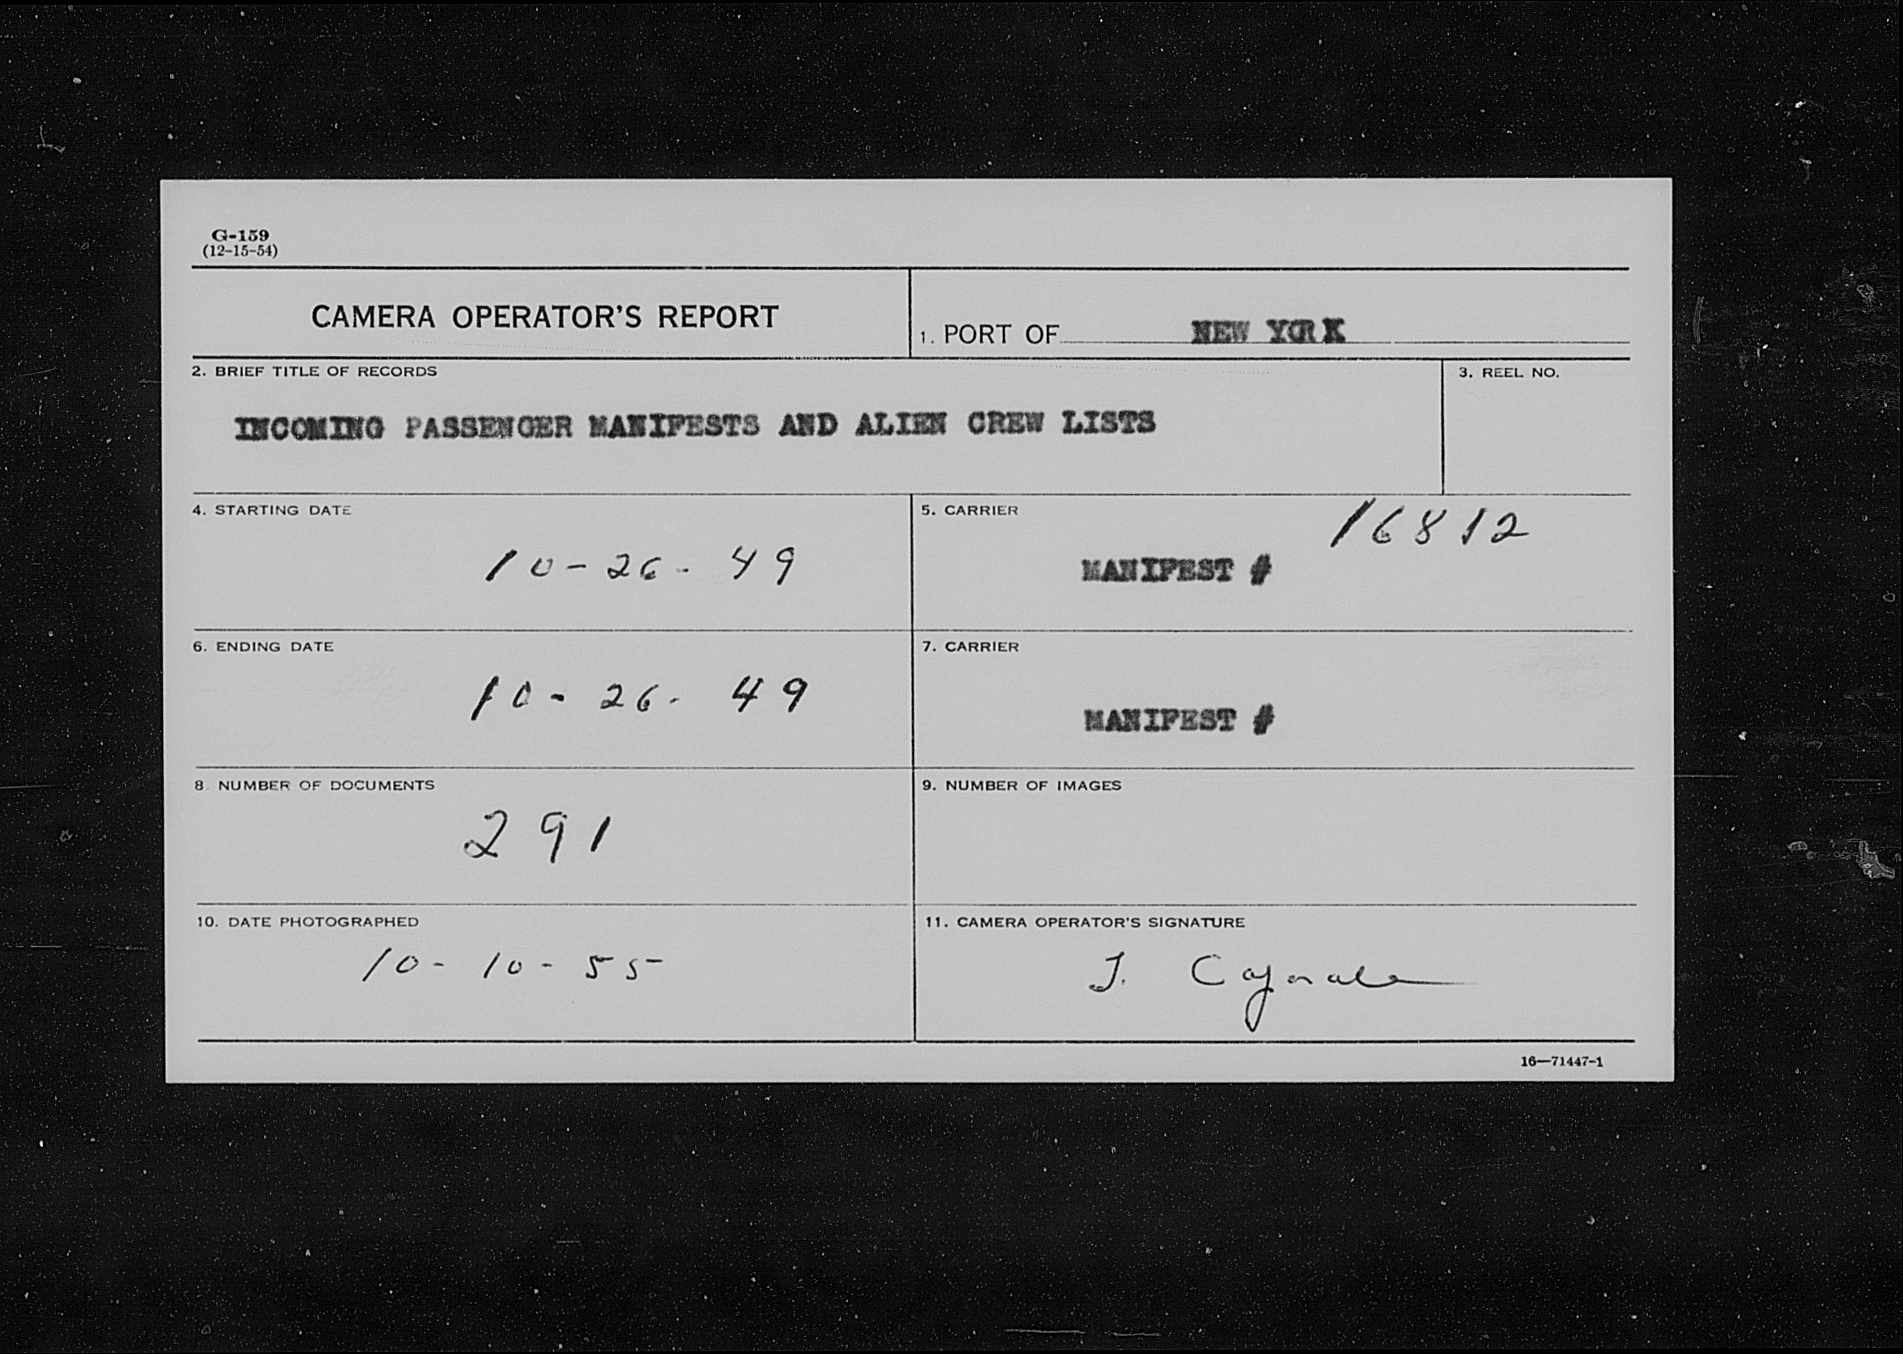 G-159
(12-15-54)
CAMERA OPERATOR'S REPORT
1. PORT OF NEW YORK
2. BRIEF TITLE OF RECORDS
3. REEL NO.
INCOMING PASSENGER MANIFESTS AND ALIEN CREW LISTS
4. STARTING DATE
10-26-49
5. CARRIER
16812
MANIFEST #
6. ENDING DATE
10-26-49
7. CARRIER
MANIFEST #
8 NUMBER OF DOCUMENTS
291
9. NUMBER OF IMAGES
10. DATE PHOTOGRAPHED
10-10-55
11. CAMERA OPERATOR'S SIGNATURE
J.
16—71447-1